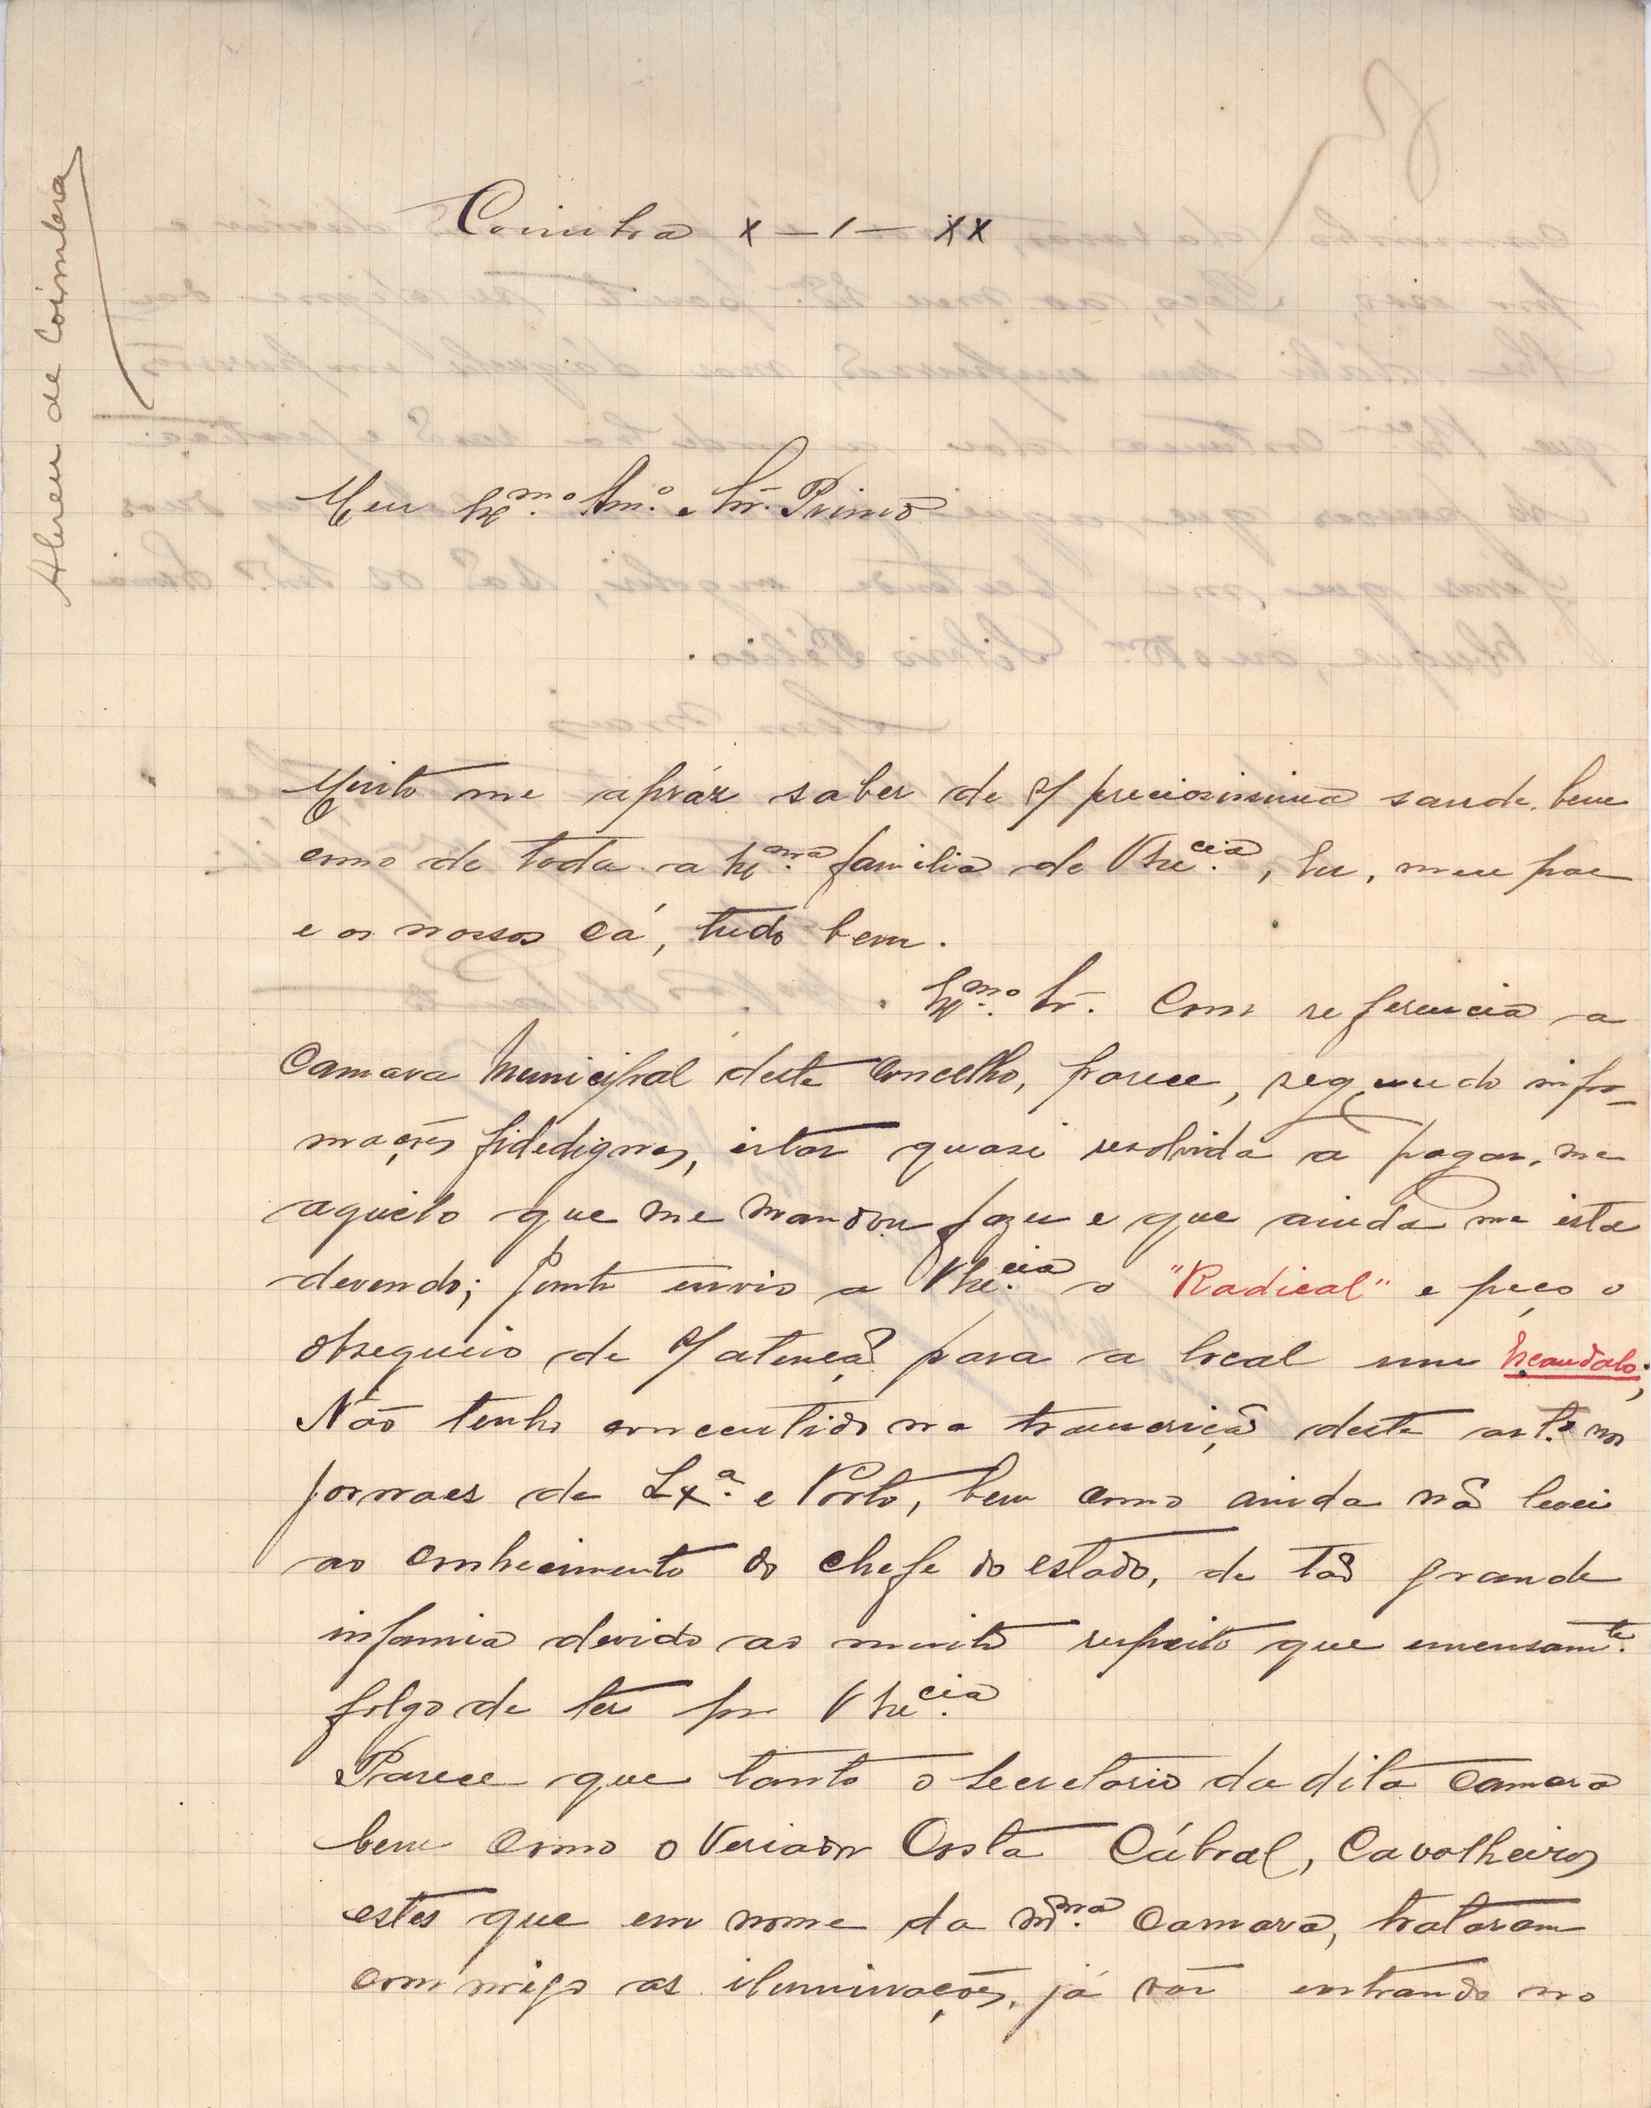 Abreu de Coimbra
Coimbra X-1-XX
Meu Ex.mo Am.o e Sr. Primo
Muito me apráz saber de S/ preciosissima saude, bem
como de toda a Ex.ma familia de V Ex.cia, Eu, meu pae
e os nossos cá, tudo bem.
Ex.mo Sr. Com referencia a
Camara Municipal deste Concelho, parece, segundo infor-
mações fidedignas, estar quasi resolvida a pagar-me
aquilo que me mandou fazer e que ainda me esta
devendo; Junto envio a V Ex.cia o "Radical" e peço o
obsequio de S/ atenção para a local um Escandalo;
Não tenho concentido na transcrição deste art.o nos
jornaes de Lx.a e Porto, bem como ainda não levei
ao conhecimento do chefe do estado, de tão grande
infamia devido ao muito respeito que imensam.te
folgo de ter por V Ex.cia
Parece que tanto o Secretario da dita Camara
bem como o Veriador Costa Cábral, Cavalheiros
estes que em nome da m.ma Camara, trataram
commigo as iluminações, já vão entrando no